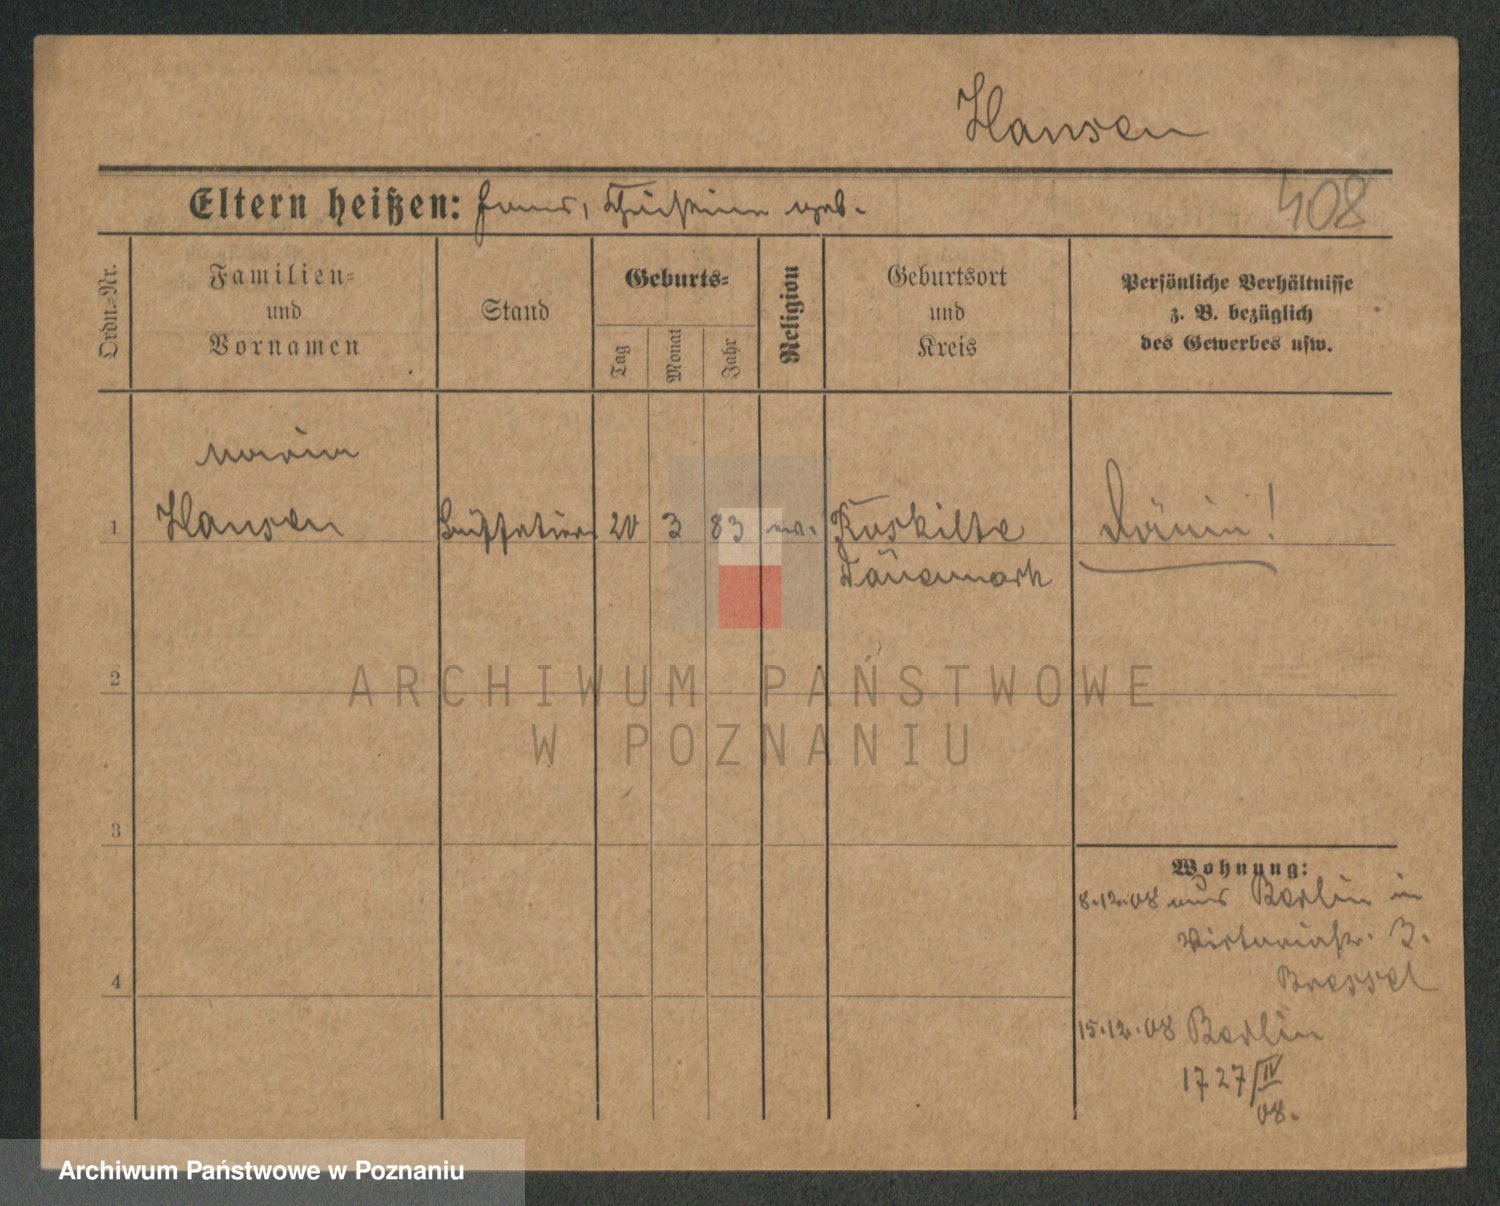 Hansen
408
Eltern heißen: Hans, Christine geb.
Ordn.-Nr.
Familien-
und
Vornamen
Stand
Geburts-
Tag
Monat
Jahr
Religion
Geburtsort
und
Kreis
Persönliche Verhältnisse
z. B. bezüglich
des Gewerbes usw.
Maria
1 Hansen 20 3 83 ev. Roskilte Dänin!
Dänemark
2
3
4
Wohnung:
8.12.08 aus Berlin in
Victoriastr. 3.
Bressel
15.12.08 Berlin
1727/IV
08.
ARCHIWUM PAŃSTWOWE
W POZNANIU
Archiwum Państwowe w Poznaniu